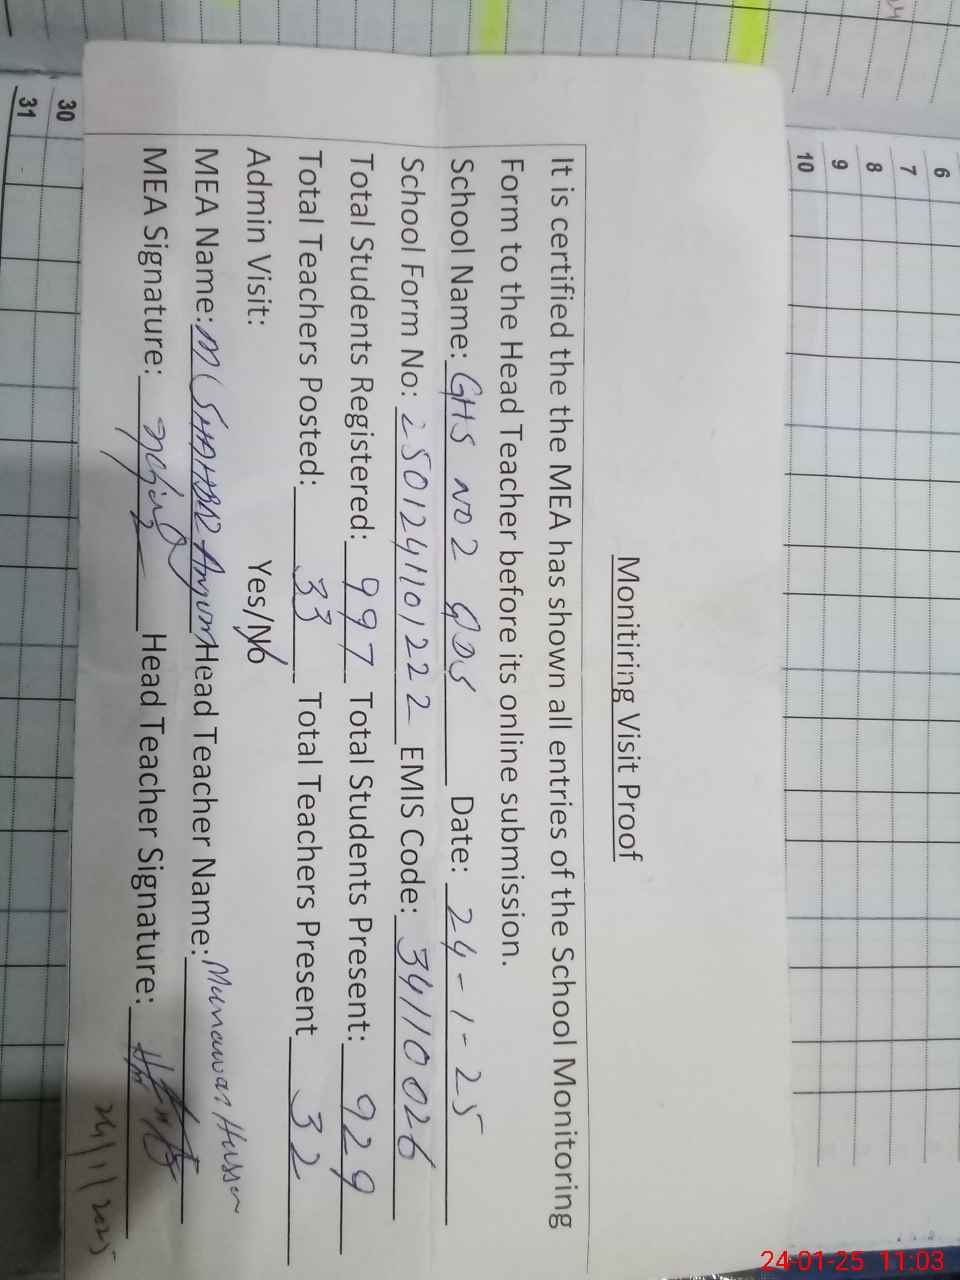 Monitiring Visit Proof
It is certified the the MEA has shown all entries of the School Monitoring
Form to the Head Teacher before its online submission.
School Name: GHS NO2 Date: 24-1-25
School Form No: 2501241101222 EMIS Code: 34110026
Total Students Registered: 997 Total Students Present: 929
Total Teachers Posted: 33 Total Teachers Present 32
Admin Visit: Yes/No
MEA Name: M SHAHBAZ Anjum Head Teacher Name: Munawar Hussen
MEA Signature: Head Teacher Signature:
24/1/2025
6
7
8
9
10
30
31
24-01-25 11:03